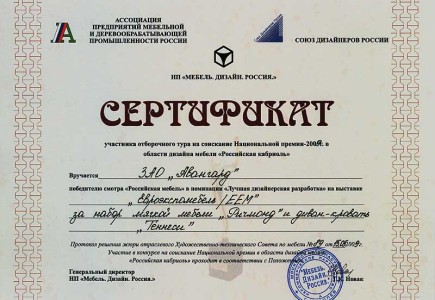 АССОЦИАЦИЯ
ПРЕДПРИЯТИЙ МЕБЕЛЬНОЙ
И ДЕРЕВООБРАБАТЫВАЮЩЕЙ
ПРОМЫШЛЕННОСТИ РОССИИ
СОЮЗ ДИЗАЙНЕРОВ РОССИИ
НП «МЕБЕЛЬ. ДИЗАЙН. РОССИЯ.»
СЕРТИФИКАТ
участника отборочного тура на соискание Национальной премии-2009 в
области дизайна мебели «Российская кабриоль»
Вручается ЗАО „Авангард"
победителю смотра «Российская мебель» в номинации «Лучшая дизайнерская разработка» на выставке
„Евроэкспомебель / EEM"
за набор мягкой мебели „Ричмонд" и диван-кровать
„Теннеси"
Протокол решения жюри отраслевого Художественно-технического Совета по мебели №
Участие в конкурсе на соискание Национальной премии в области дизайна мебели
«Российская кабриоль» проходит в соответствии с Положением
Генеральный директор
НП «Мебель. Дизайн. Россия.»
Новак
Мебель.
Дизайн.
Россия.